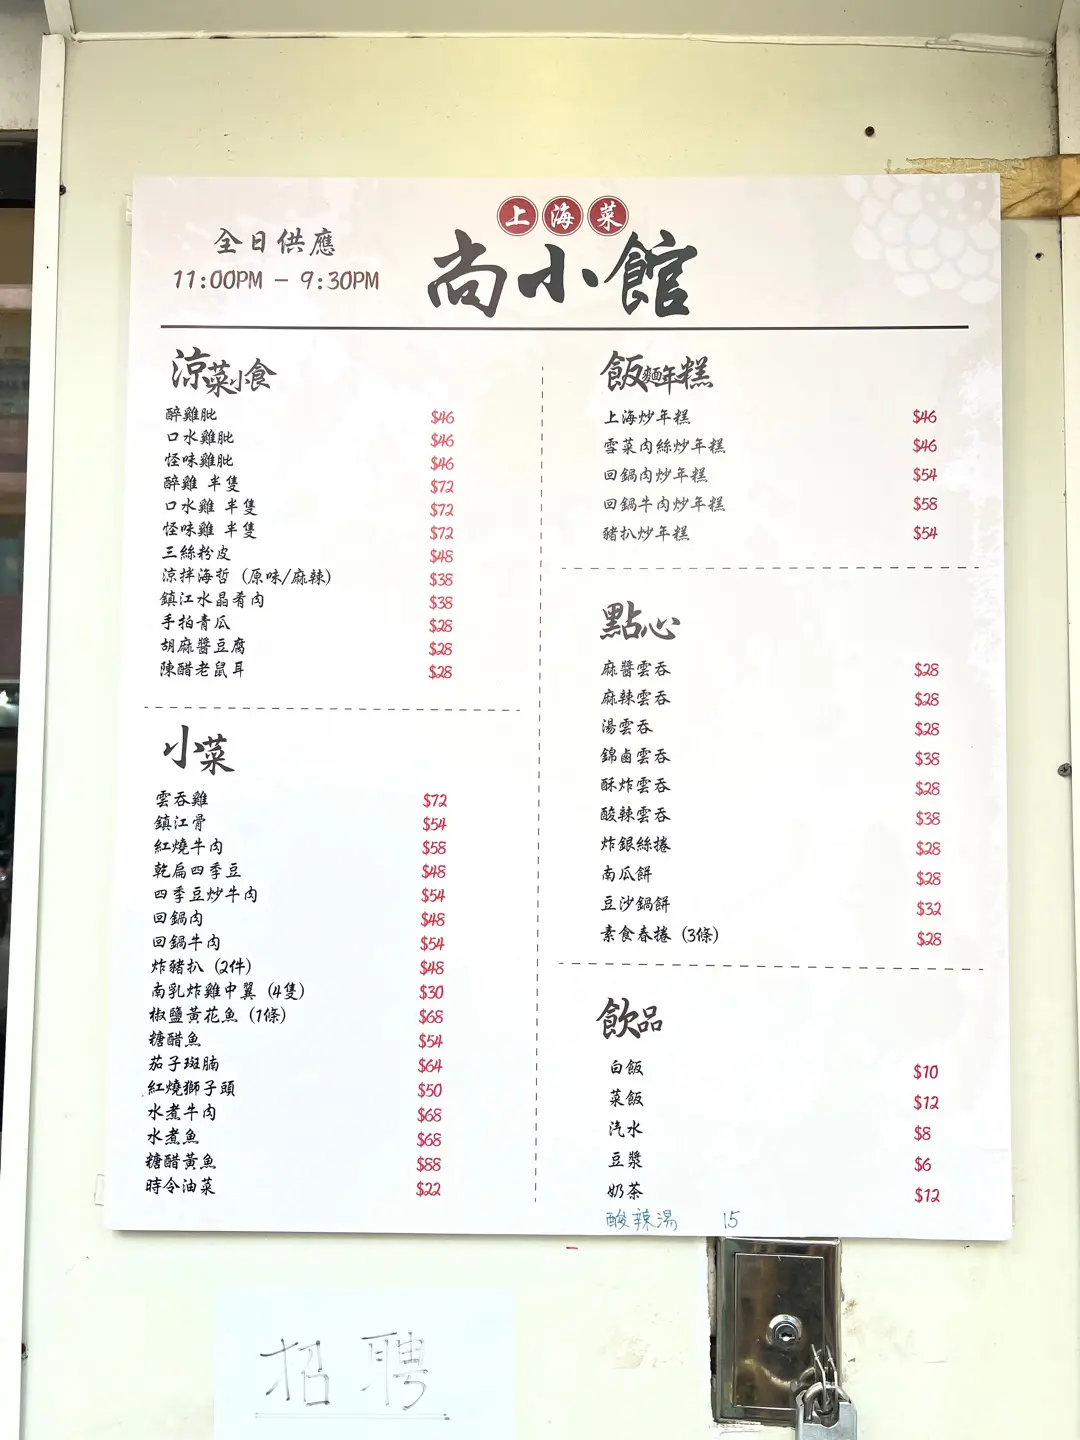 上海菜
尚小館
全日供應
11:00PM – 9:30PM
涼菜小食
醉雞肶 $46
口水雞肶 $46
怪味雞肶 $46
醉雞 半隻 $72
口水雞 半隻 $72
怪味雞 半隻 $72
三絲粉皮 $48
涼拌海哲 (原味/麻辣) $38
鎮江水晶肴肉 $38
手拍青瓜 $28
胡麻醬豆腐 $28
陳醋老鼠耳 $28
小菜
雲吞雞 $72
鎮江骨 $54
紅燒牛肉 $58
乾扁四季豆 $48
四季豆炒牛肉 $54
回鍋肉 $48
回鍋牛肉 $54
炸豬扒 (2件) $48
南乳炸雞中翼 (4隻) $30
椒鹽黃花魚 (1條) $68
糖醋魚 $54
茄子斑腩 $64
紅燒獅子頭 $50
水煮牛肉 $68
水煮魚 $68
糖醋黃魚 $88
時令油菜 $22
飯麵年糕
上海炒年糕 $46
雪菜肉絲炒年糕 $46
回鍋肉炒年糕 $54
回鍋牛肉炒年糕 $58
豬扒炒年糕 $54
點心
麻醬雲吞 $28
麻辣雲吞 $28
湯雲吞 $28
錦鹵雲吞 $38
酥炸雲吞 $28
酸辣雲吞 $38
炸銀絲捲 $28
南瓜餅 $28
豆沙鍋餅 $32
素食春捲 (3條) $28
飲品
白飯 $10
菜飯 $12
汽水 $8
豆漿 $6
奶茶 $12
酸辣湯 15
招聘